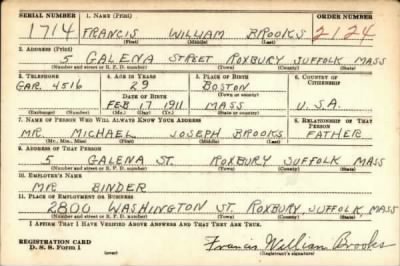 SERIAL NUMBER 1. NAME (Print) ORDER NUMBER
1714 FRANCIS WILLIAM BROOKS 2124
(First) (Middle) (Last)
2. ADDRESS (Print)
5 GALENA STREET ROXBURY SUFFOLK MASS
(Number and street or R. F. D. number) (Town) (County) (State)
3. TELEPHONE 4. AGE IN YEARS 5. PLACE OF BIRTH 6. COUNTRY OF CITIZENSHIP
GAR. 4516 29 BOSTON
DATE OF BIRTH (Town or county)
FEB 17 1911 MASS U.S.A.
(Exchange) (Number) (Mo.) (Day) (Yr.) (State or country)
7. NAME OF PERSON WHO WILL ALWAYS KNOW YOUR ADDRESS 8. RELATIONSHIP OF THAT PERSON
MR. MICHAEL JOSEPH BROOKS FATHER
(Mr., Mrs., Miss) (First) (Middle) (Last)
9. ADDRESS OF THAT PERSON
5 GALENA ST. ROXBURY SUFFOLK MASS
(Number and street or R. F. D. number) (Town) (County) (State)
10. EMPLOYER'S NAME
MR BINDER
11. PLACE OF EMPLOYMENT OR BUSINESS
2800 WASHIINGTON ST. ROXBURY SUFFOLK MASS
(Number and street or R. F. D. number) (Town) (County) (State)
I AFFIRM THAT I HAVE VERIFIED ABOVE ANSWERS AND THAT THEY ARE TRUE.
REGISTRATION CARD
D. S. S. Form 1 (over) Francis William Brooks
(Registrant's signature)